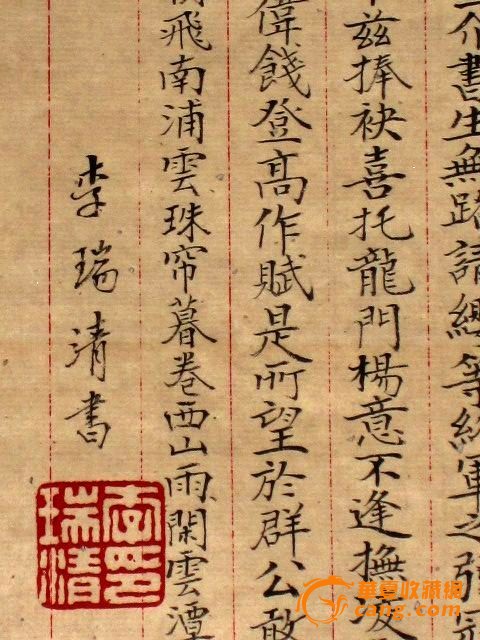 一介書生無路請纓等終軍之弱冠
兹捧袂喜托龍門楊意不逢撫凌
偉餞登高作賦是所望於群公敢
飛南浦雲珠帘暮卷西山雨閑雲潭
李瑞清書
李瑞清印
華夏收藏網
cang.com